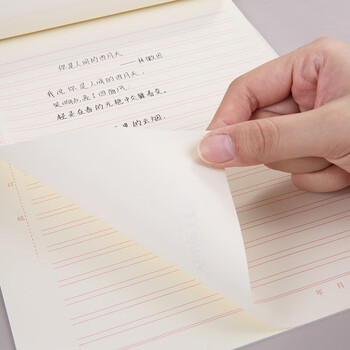 你是人间的四月天
——林徽因
我说你是人间的四月天
笑响点亮了四面风
轻灵在春的光艳中交舞着变。
的云烟,
年 月
日期